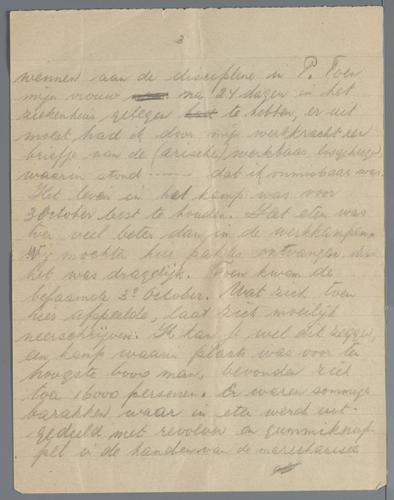 3
wennen aan de discipline in P. Toen
mijn vrouw na 24 dagen in het
ziekenhuis gelegen te hebben, er uit
moest had ik door mijn werkkracht een
briefje aan de (arische) werkbaas
waarin stond dat ik onmisbaar was.
Het leven in het kamp was voor
3 October best te houden. Het eten was
hier veel beter dan in de werkkampen.
Wij mochten hier pakjes ontvangen dus
het was dragelijk. Toen kwam de
befaamde 3e October. Wat zich toen
hier afspeelde, laat zich moeilijk
neerschrijven. Ik kan je wel dit zeggen,
een kamp waarin plaats was voor ten
hoogste 6000 man, bevonden zich
toe 16000 personen. Er waren sommige
barakken waar in eten werd uit-
gedeeld met revolver en gummiknup-
pel in de handen van de marechaussee